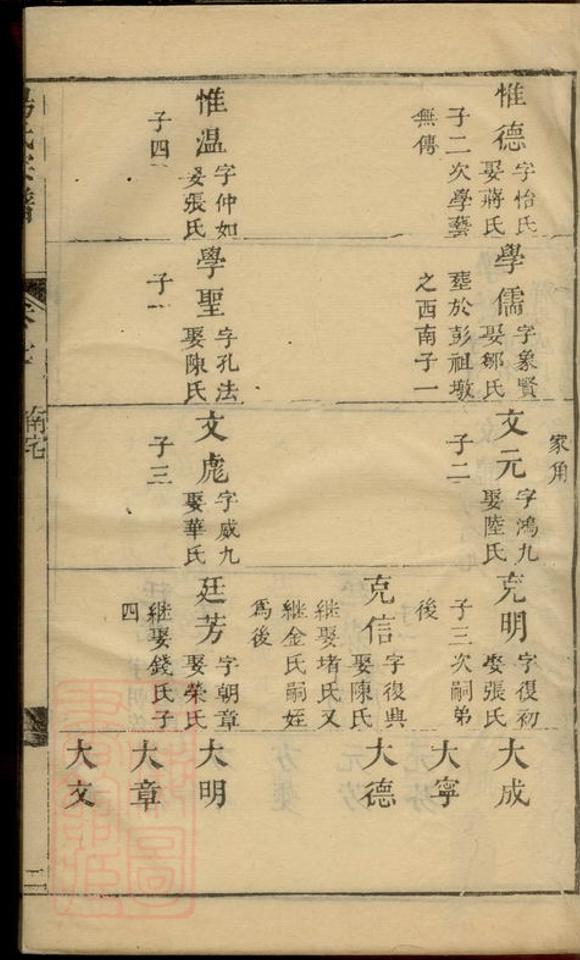 惟德
字怡氏
娶蔣氏
子二次學藝
無傳
惟温
字仲如
娶張氏
子四
學儒
字象賢
娶鄒氏
塟於彭祖墩
之西南子一
學聖
字孔法
娶陳氏
子一
家角
文元
字鴻九
娶陸氏
子二
文彪
字威九
娶華氏
子三
克明
字復初
娶張氏
子三次嗣弟
後
克信
字復興
娶陳氏
継娶堵氏又
継金氏嗣姪
為後
廷芳
字朝章
娶榮氏
継娶錢氏子
四
大成
大寧
大德
大明
大章
大文
氏宗譜
南宅